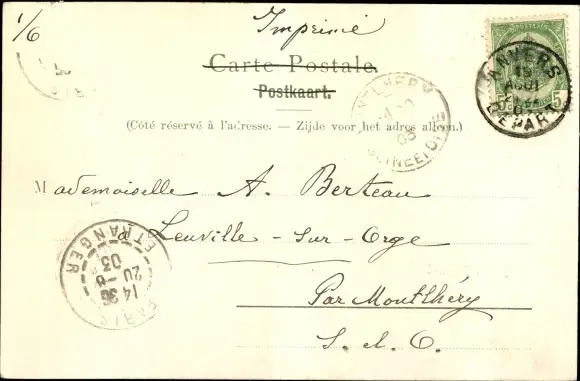 1/6
Imprimé
Carte Postale.
Postkaart.
(Côté réservé à l'adresse. — Zijde voor het adres alleen.)
Mademoiselle A. Berteau
à Leuville-sur-Orge
Par Montlhéry
S. et O.
ANVERS
DEPART
5
PARIS
ETRANGER
14 30
20 - 8
03